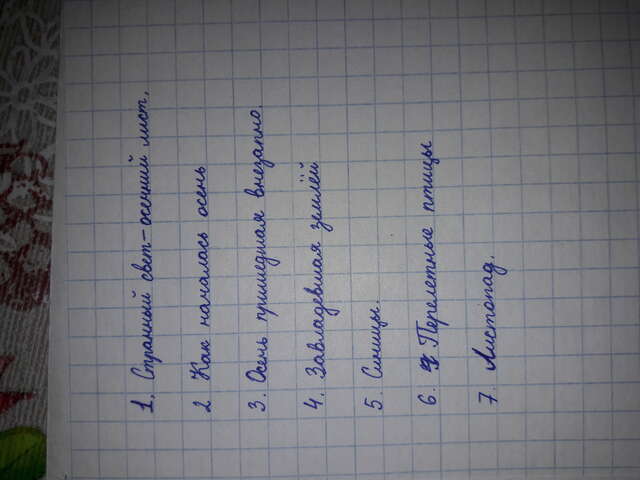 1. Странный свет - осенний лист.
2 Как началась осень
3. Осень пришедшая внезапно.
4. Завладевшая землёй
5. Синицы.
6. Перелетные птицы
7. Листопад.